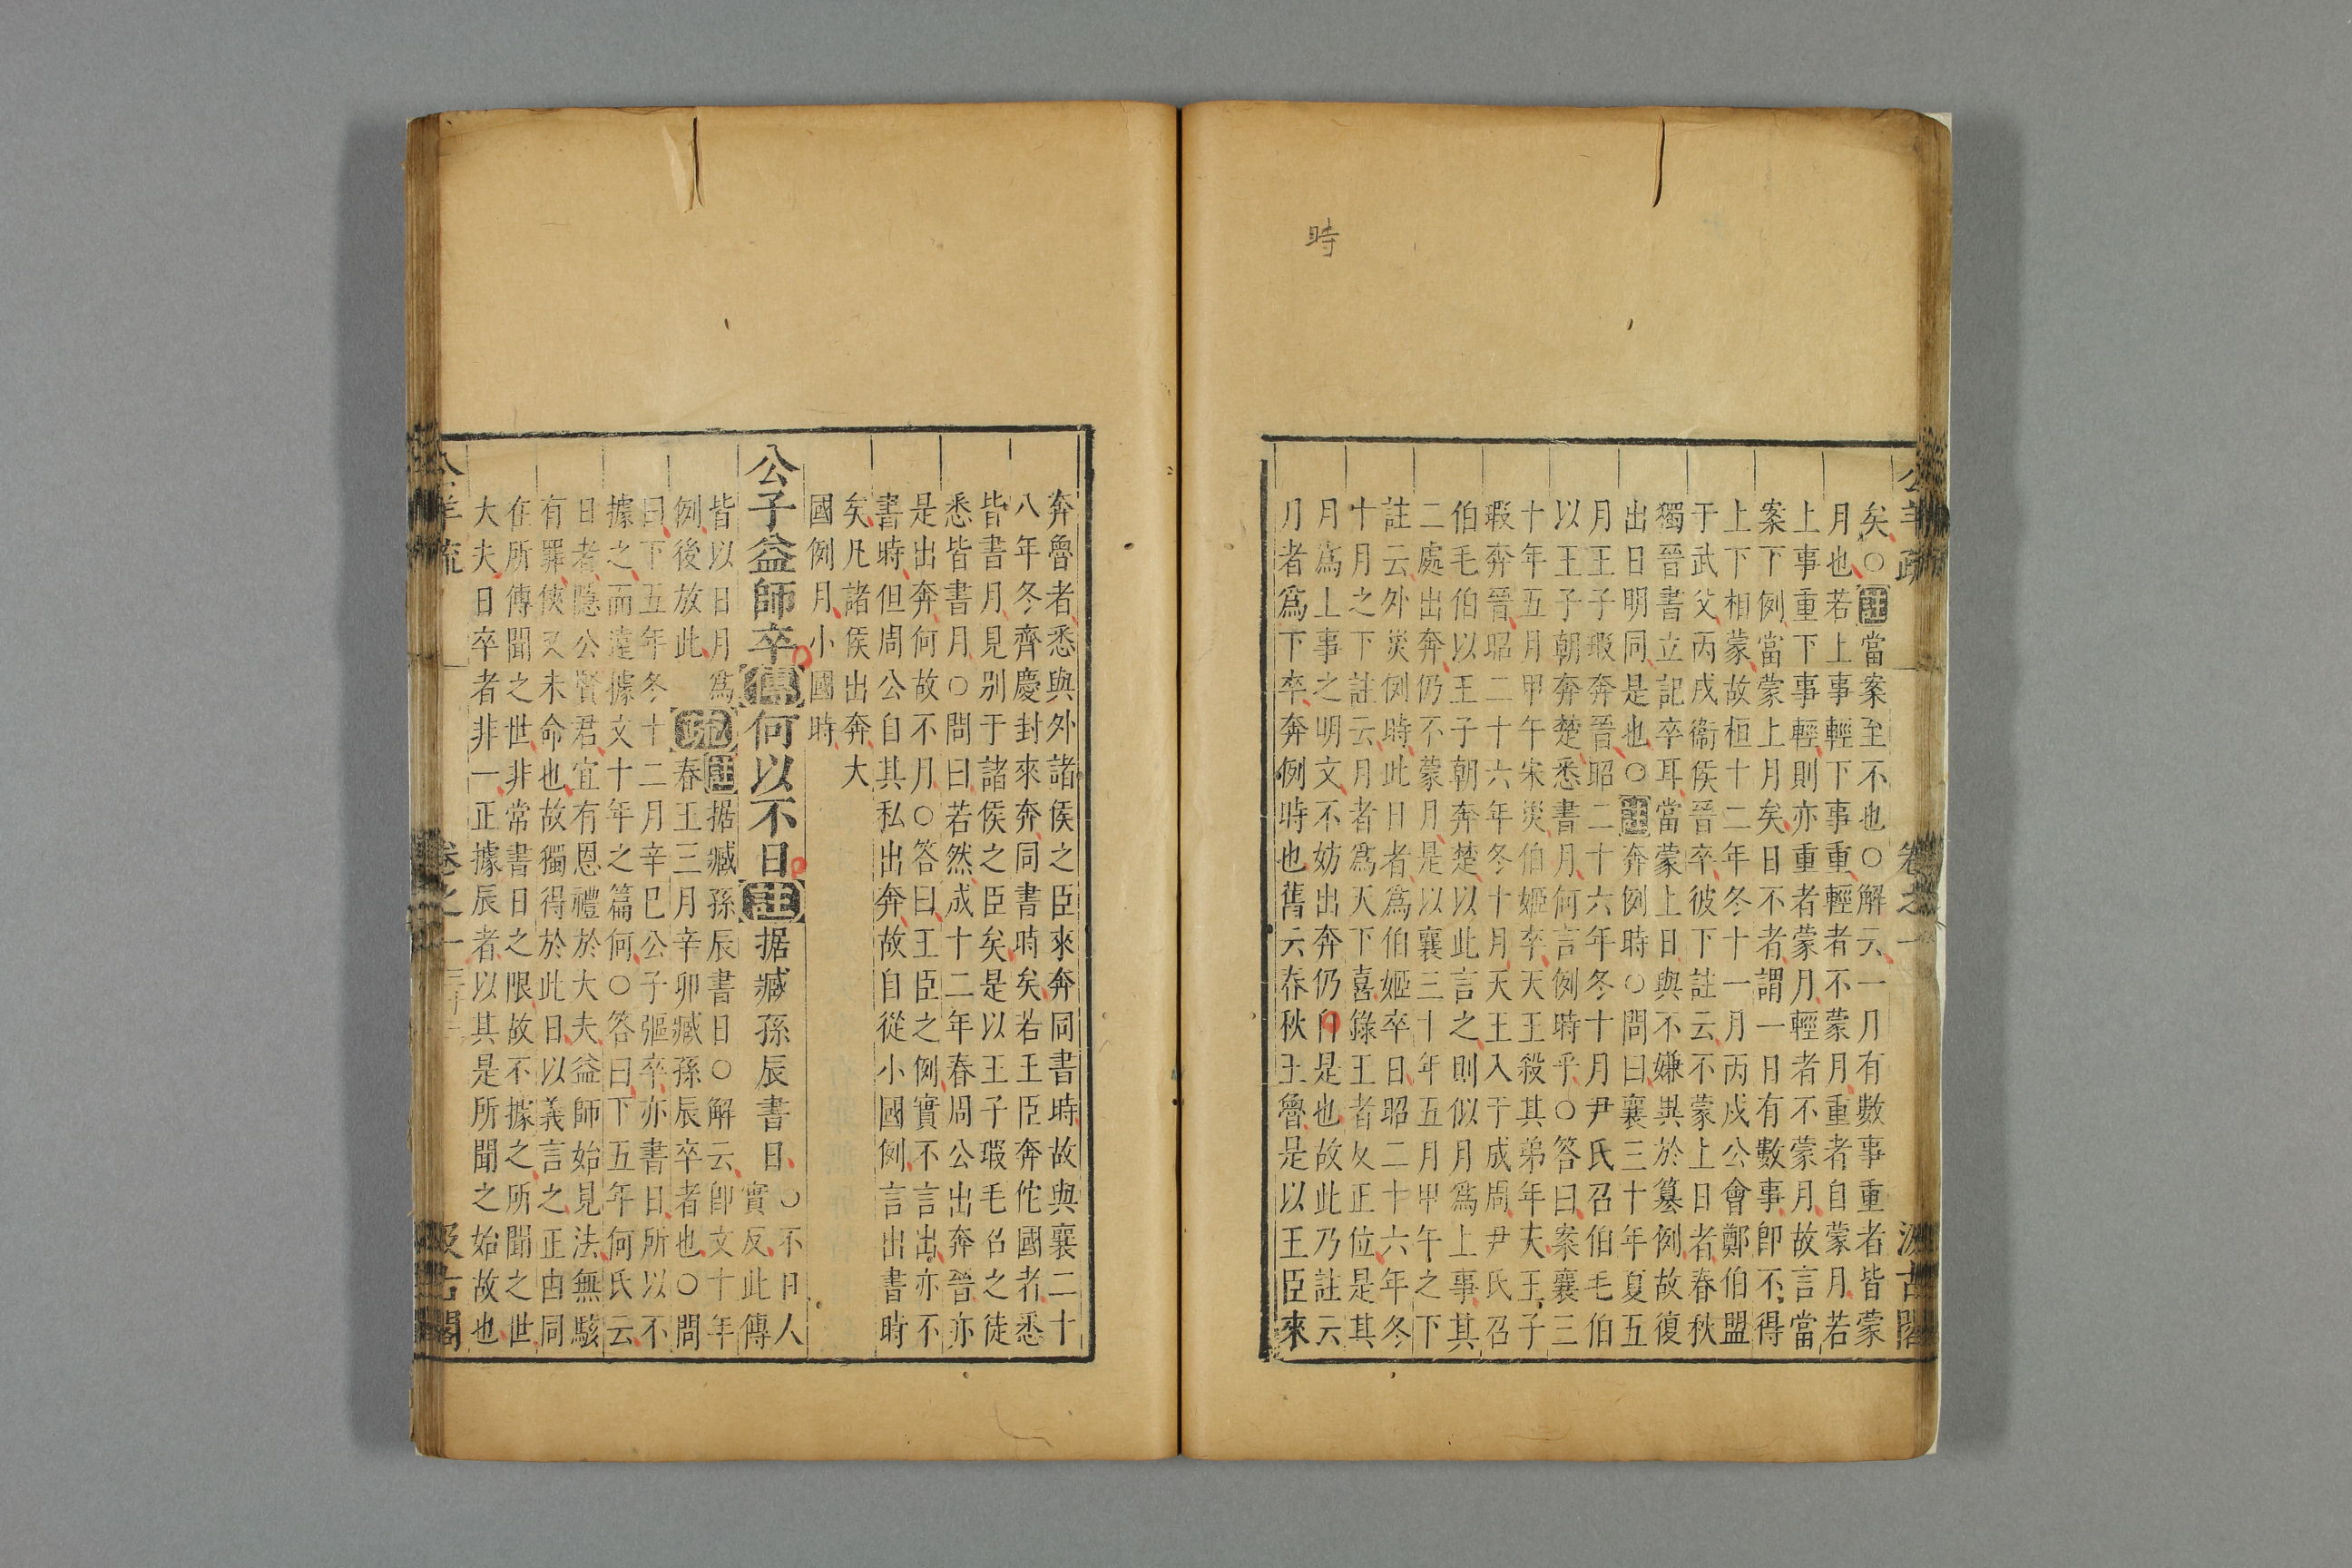 時
公羊疏 卷之一 汲古閣
矣○註當案至不也○解云一月有數事重者皆蒙
月也若上事輕下事重輕者不蒙月重者自蒙月若
上事重下事輕則亦重者蒙月輕者不蒙月故言當
案下例當蒙上月矣日不者謂一日有數事即不得
上下相蒙故桓十二年冬十一月丙戌公會鄭伯盟
于武父丙戌衞侯晉卒彼下註云不蒙上日者春秋
獨晉書立記卒耳當蒙上日與不嫌異於篡例故復
出日明同是也○註奔例時○問曰襄三十年夏五
月王子瑕奔晉昭二十六年冬十月尹氏召伯毛伯
以王子朝奔楚悉書月何言例時乎○答曰案襄三
十年五月甲午宋災伯姬卒天王殺其弟年夫王子
瑕奔晉昭二十六年冬十月天王入于成周尹氏召
伯毛伯以王子朝奔楚以此言之則似月爲上事其
二處出奔仍不蒙月是以襄三十年五月甲午之下
註云外災例時此日者爲伯姬卒日昭二十六年冬
十月之下註云月者爲天下喜錄王者反正位是其
月爲上事之明文不妨出奔仍自是也故此乃註云
月者爲下卒奔例時也舊云春秋王魯是以王臣來
奔魯者悉與外諸侯之臣來奔同書時故與襄二十
八年冬齊慶封來奔同書時矣若王臣奔佗國者悉
皆書月見别于諸侯之臣矣是以王子瑕毛召之徒
悉皆書月○問曰若然成十二年春周公出奔晉亦
是出奔何故不月○答曰王臣之例實不言出亦不
書時但周公自其私出奔故自從小國例言出書時
矣凡諸侯出奔大
國例月小國時
公子益師卒傳何以不日註据臧孫辰書日○不日人
實反此傳
皆以日月爲註据臧孫辰書日○解云卽文十年
例後放此疏春王三月辛卯臧孫辰卒者也○問
曰下五年冬十二月辛巳公子彄卒亦書日所以不
據之而遠據文十年之篇何○答曰下五年何氏云
日者隱公賢君宜有恩禮於大夫益師始見法無駭
有罪俠又未命也故獨得於此日以義言之正由同
在所傳聞之世非常書日之限故不據之所聞之世
大夫日卒者非一正據辰者以其是所聞之始故也
公羊疏 卷之一 三十三 汲古閣